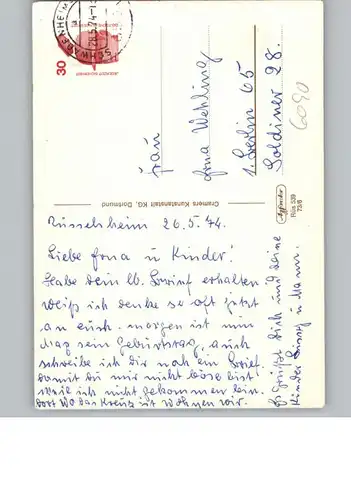 30
SCHWABENHEIM
28.5.74-1
Frau
Erna Wehling
1 Berlin 65
Soldiner 28.
6090
Cramers Kunstanstalt KG, Dortmund
Rüs 539
73/6
Rüsselsheim 26.5.74.
Liebe Erna u Kinder!
Habe dein lb. Brief erhalten.
Weiß ich denke so oft jetzt
an euch. morgen ist nun
sein Geburtstag, auch
schreibe ich dir noch ein Brief.
damit du mir nicht böse bist
weil ich nicht gekommen bin.
Dort wo das Kreuz ist wohnen wir.
Es grüßt Dich und deine
Kinder u Mann.